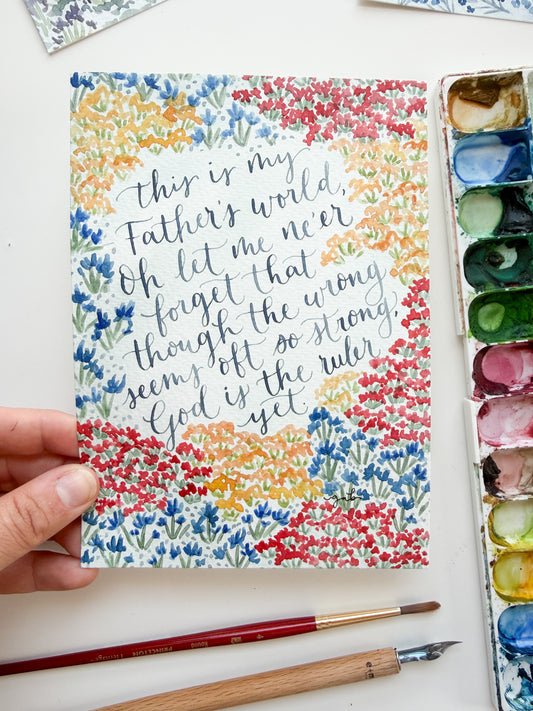 this is my
Father's world,
Oh let me ne'er
forget that
though the wrong
seems oft so strong,
God is the ruler
yet.
PRINCETON
4
ROUND